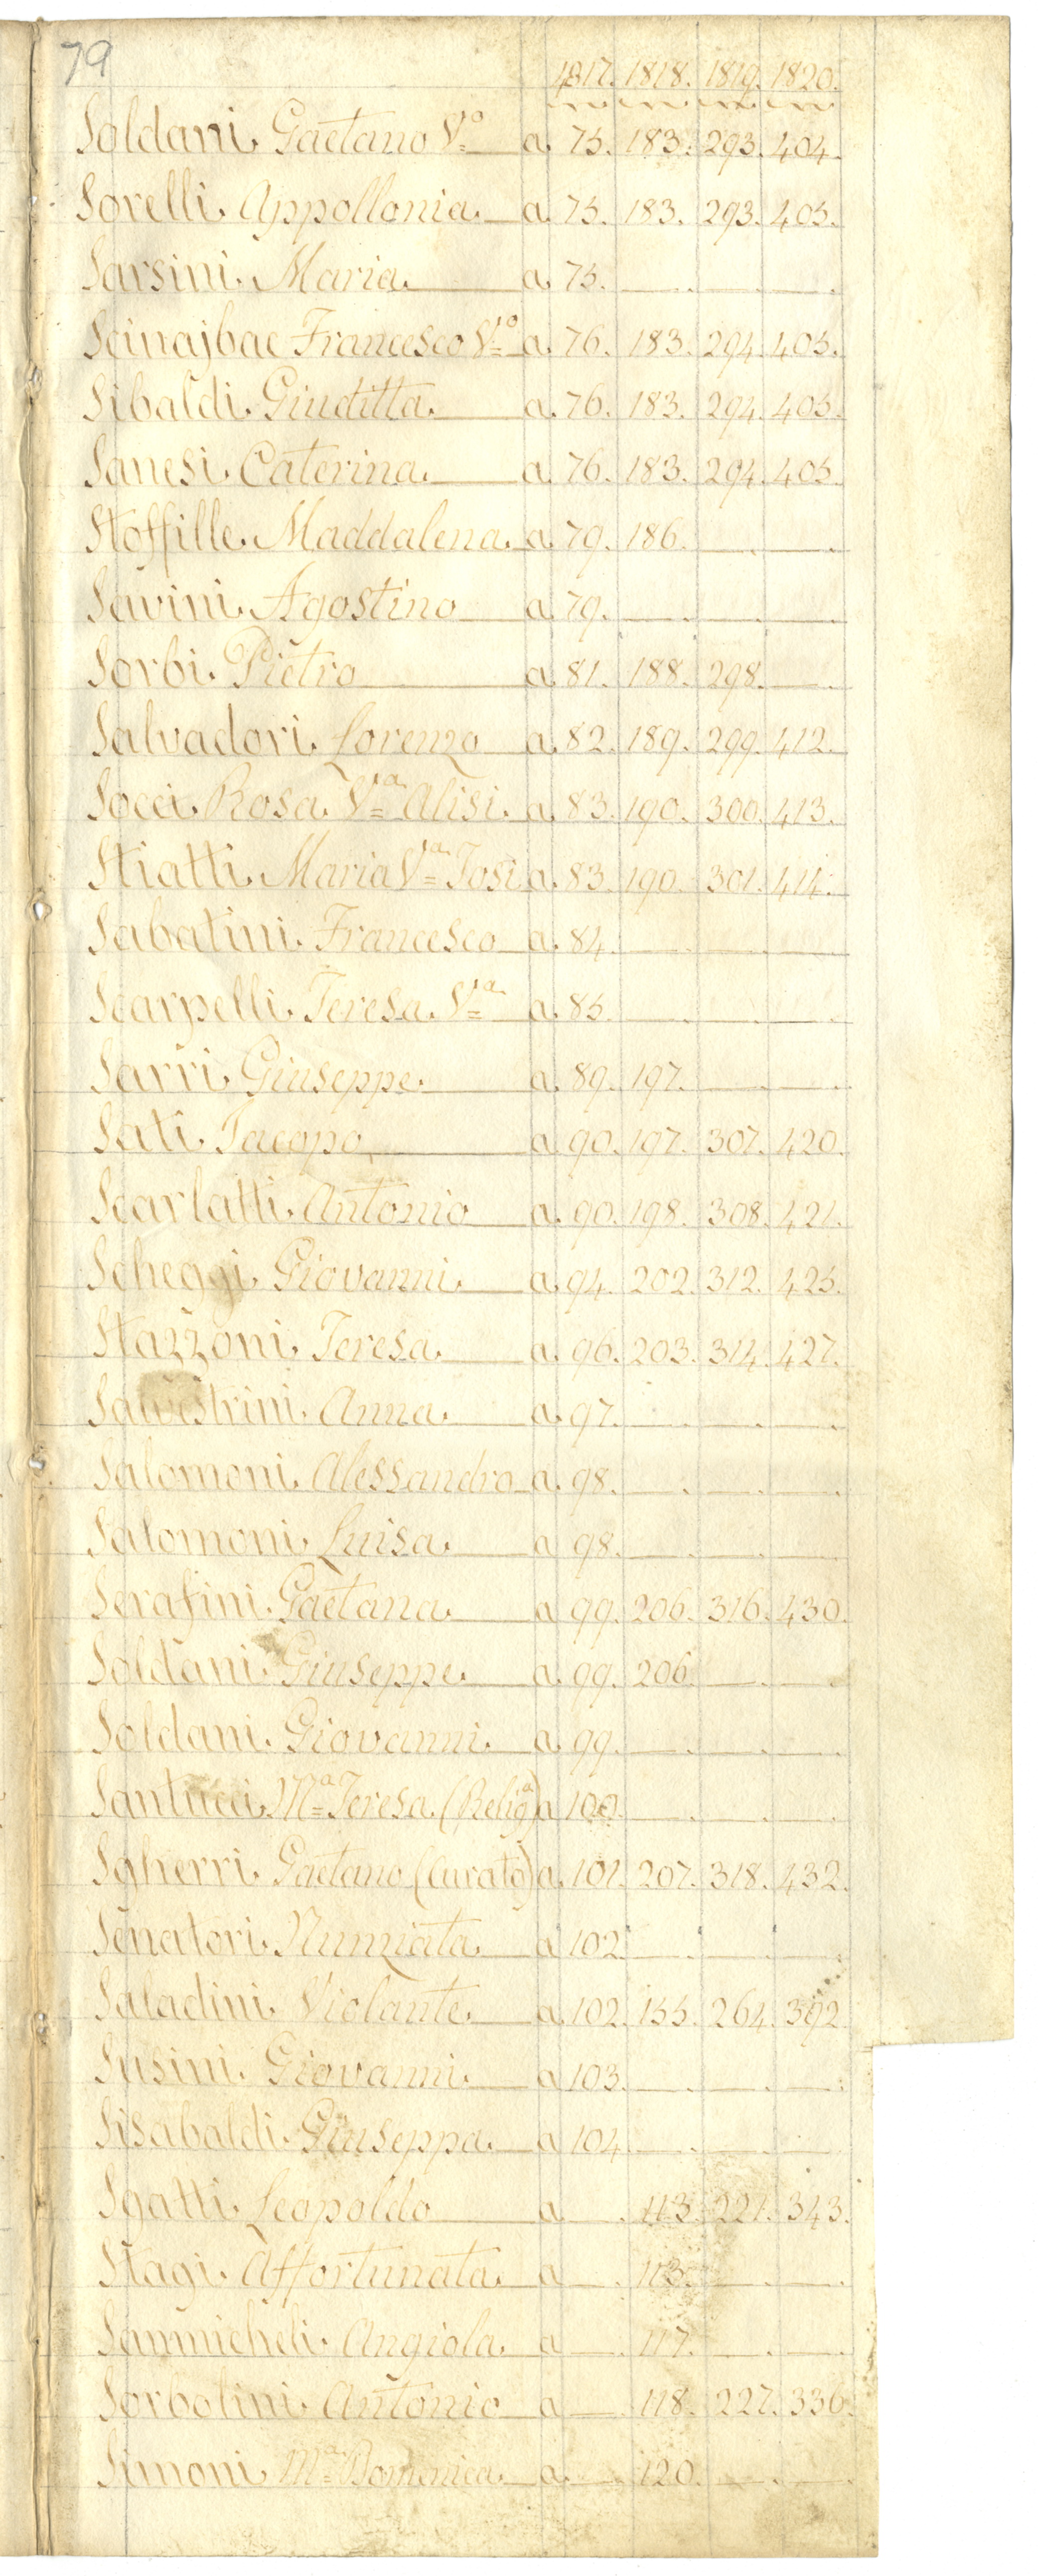 79
1817. 1818. 1819. 1820.
Soldani Gaetano Vº a 75. 183. 293. 404.
Sorelli Appollonia a 75. 183. 293. 405.
Sarsini Maria a 75.
Scinajbac Francesco Vº a 76. 183. 294. 405.
Sibaldi Giuditta a 76. 183. 294. 405.
Sanesi Caterina a 76. 183. 294. 405.
Stoffille Maddalena a 79. 186.
Savini Agostino a 79.
Sorbi Pietro a 81. 188. 298.
Salvadori Lorenzo a 82. 189. 299. 412.
Socci Rosa Vª Alisi a 83. 190. 300. 413.
Stiatti Maria Vª Tosi a 83. 190. 301. 414.
Sabatini Francesco a 84.
Scarpelli Teresa Vª a 85.
Sarri Giuseppe a 89. 197.
Sati Jacopo a 90. 197. 307. 420.
Scarlatti Antonio a 90. 198. 308. 421.
Scheggi Giovanni a 94. 202. 312. 425.
Stazzoni Teresa a 96. 203. 314. 427.
Salvestrini Anna a 97.
Salomoni Alessandro a 98.
Salomoni Luisa a 98.
Serafini Gaetana a 99. 206. 316. 430.
Soldani Giuseppe a 99. 206.
Soldani Giovanni a 99.
Santucci Mª Teresa (Religª) a 100.
Sgherri Gaetano (Curato) a 101. 207. 318. 432.
Senatori Nunziata a 102.
Saladini Violante a 102. 155. 264. 392.
Susini Giovanni a 103.
Sisabaldi Giuseppa a 104
Sgatti Leopoldo a 113. 221. 343.
Stagi Affortunata a 113.
Sanmicheli Angiola a 117.
Sorbolini Antonio a 118. 227. 336.
Simoni Mª Domenica a 120.